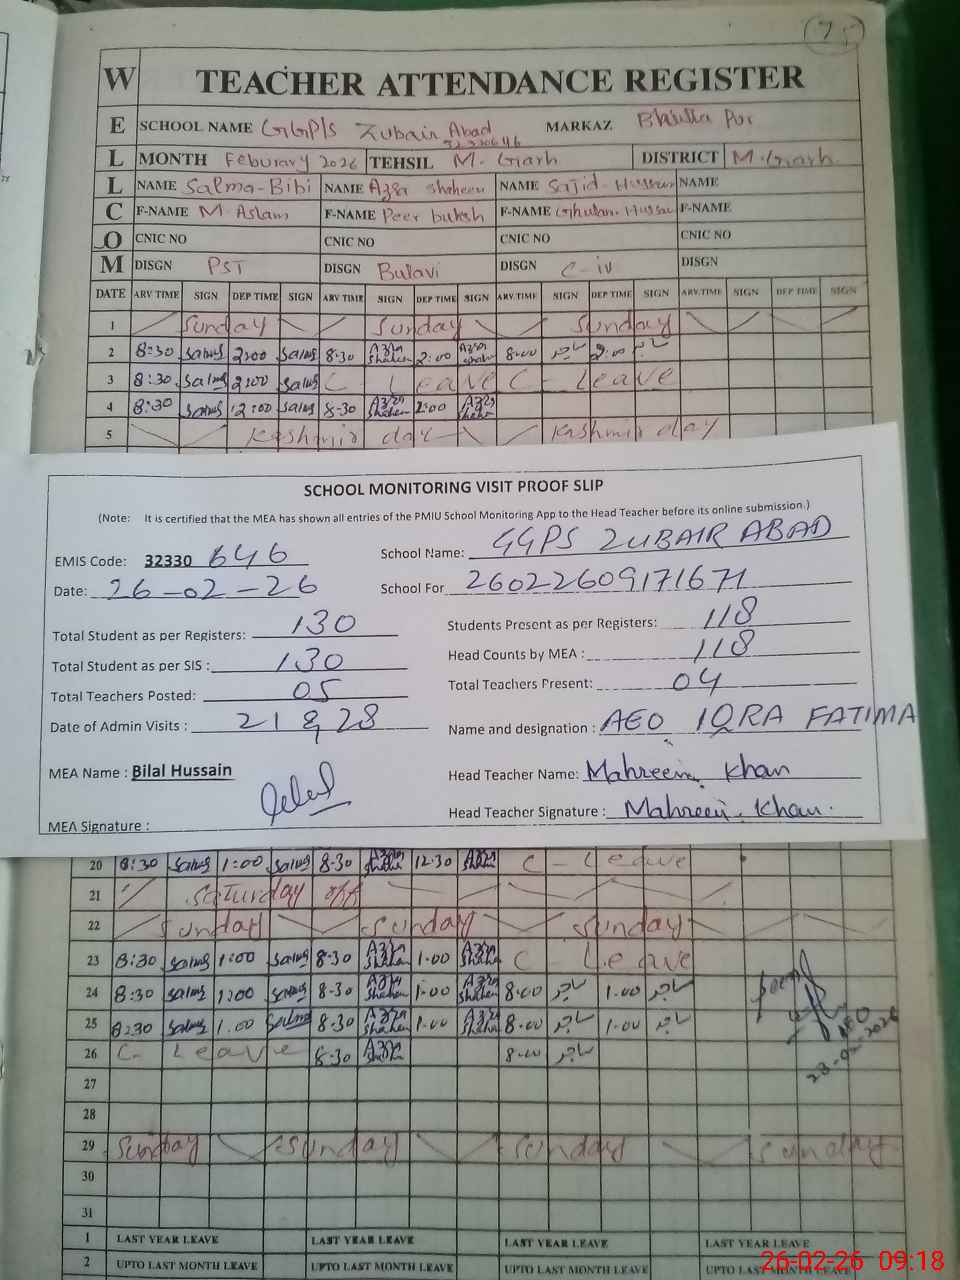 75
W TEACHER ATTENDANCE REGISTER
E SCHOOL NAME GGP/S Zubair Abad MARKAZ Bhutta Pur
32330646
L MONTH Feburary 2026 TEHSIL M. Garh DISTRICT M. Garh
L NAME Salma-Bibi NAME Azra shaheen NAME Sajid-Hussain NAME
C F-NAME M. Aslam F-NAME Peer buksh F-NAME Ghulam Hussain F-NAME
O CNIC NO CNIC NO CNIC NO CNIC NO
M DISGN PST DISGN Bulavi DISGN C-iv DISGN
DATE ARV TIME SIGN DEP TIME SIGN ARV TIME SIGN DEP TIME SIGN ARV.TIME SIGN DEP TIME SIGN ARV.TIME SIGN DEP TIME SIGN
1 Sunday Sunday Sunday
2 8:30 Salma 2:00 Salma 8-30 Azra shaheen 2:00 Azra shaheen 8.00 ساجد 2.00 ساجد
3 8:30 Salma 2:00 Salma C - Leave C - Leave
4 8:30 Salma 12:00 Salma 8-30 Azra shaheen 2:00 Azra shaheen
5 Kashmir day Kashmir day
SCHOOL MONITORING VISIT PROOF SLIP
(Note: It is certified that the MEA has shown all entries of the PMIU School Monitoring App to the Head Teacher before its online submission.)
EMIS Code: 32330 646 School Name: GGPS ZUBAIR ABAD
Date: 26-02-26 School For 26022609171671
Total Student as per Registers: 130 Students Present as per Registers: 118
Total Student as per SIS : 130 Head Counts by MEA : 118
Total Teachers Posted: 05 Total Teachers Present: 04
Date of Admin Visits : 21 & 28 Name and designation : AEO IQRA FATIMA
MEA Name : Bilal Hussain Head Teacher Name: Mahreen Khan
MEA Signature : Head Teacher Signature : Mahreen. Khan.
20 8:30 Salma 1:00 Salma 8-30 Azra 12.30 Azra C - Leave
21 Saturday off
22 Sunday Sunday Sunday
23 8:30 Salma 1:00 Salma 8-30 Azra shaheen 1.00 Azra shaheen C - Leave
24 8:30 Salma 1:00 Salma 8-30 Azra shaheen 1.00 Azra shaheen 8.00 ساجد 1.00 ساجد
25 8:30 Salma 1.00 Salma 8.30 Azra shaheen 1.00 Azra shaheen 8.00 ساجد 1.00 ساجد
AEO
26 C - Leave 8-30 Azra 8.00 ساجد
27
28
29 Sunday Sunday Sunday Sunday
30
31
1 LAST YEAR LEAVE LAST YEAR LEAVE LAST YEAR LEAVE LAST YEAR LEAVE
2 UPTO LAST MONTH LEAVE UPTO LAST MONTH LEAVE UPTO LAST MONTH LEAVE UPTO LAST MONTH LEAVE
26-02-26 09:18